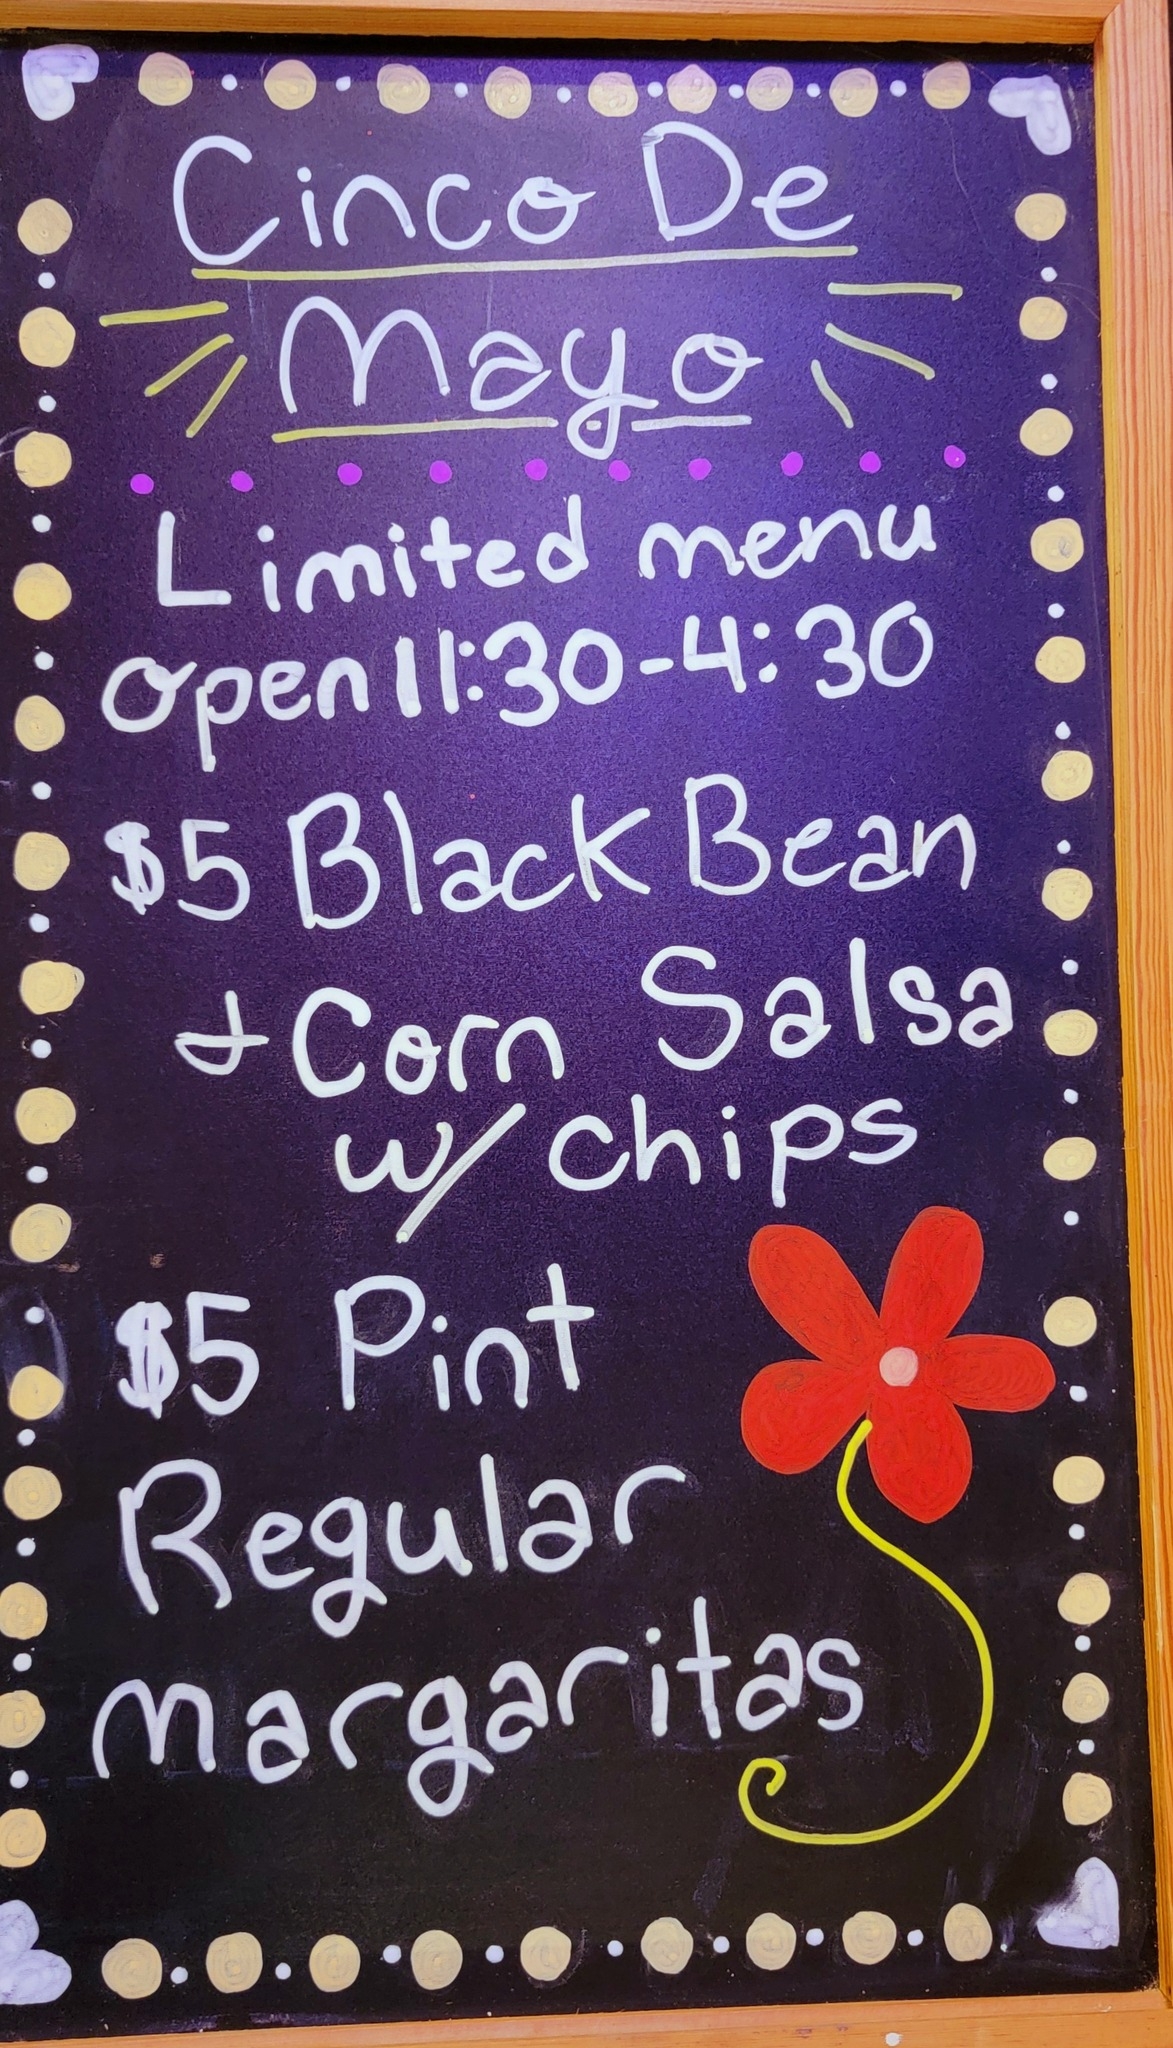 Cinco De
Mayo
Limited menu
open 11:30-4:30
$5 Black Bean
+ Corn Salsa
w/ chips
$5 Pint
Regular
margaritas